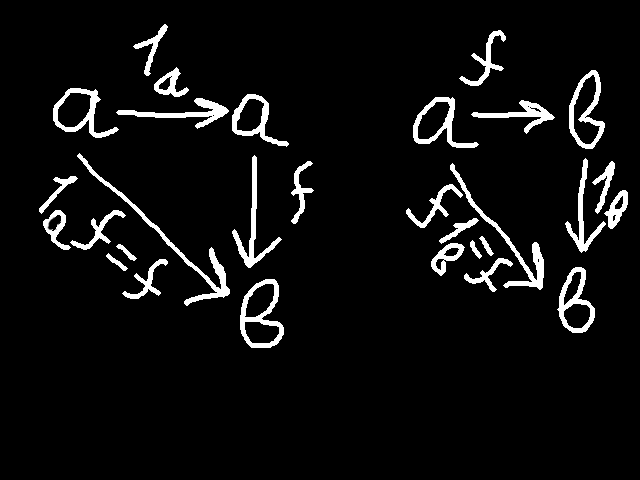 1a
a → a
f
1a f = f
b
f
a → b
1b
f 1b = f
b